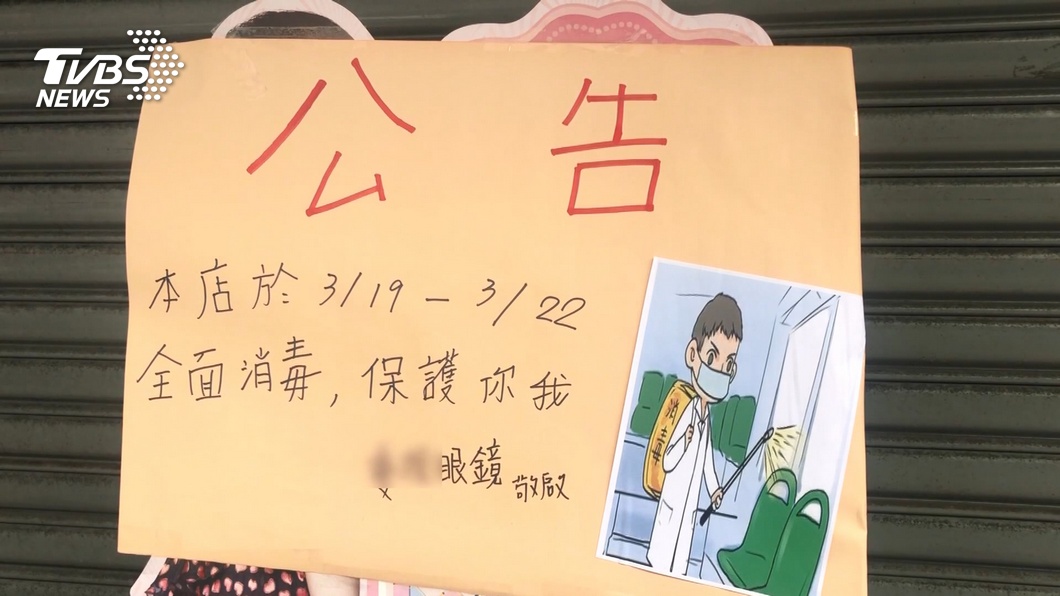 TVBS
NEWS
公告
本店於 3/19 - 3/22
全面消毒,保護你我
眼鏡 敬啟
消毒